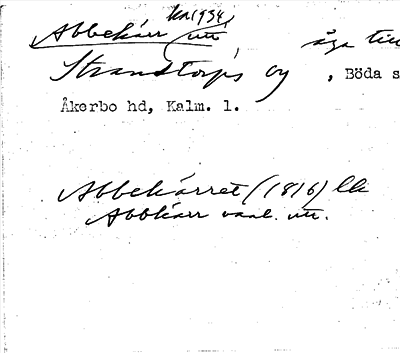 ka 1934,
Abbekärr utt äga till
Strandtorps by , Böda s
Åkerbo hd, Kalm. l.
Abbekärret (1816) lk
Abbkärr vanl. utt.